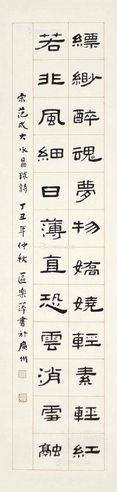 縹緲醉魂夢物嬌嬈輕素輕紅
若非風細日薄直恐雲消雪融
宋范成大水晶球詩 丁丑年仲秋 區樂萍書於廣州